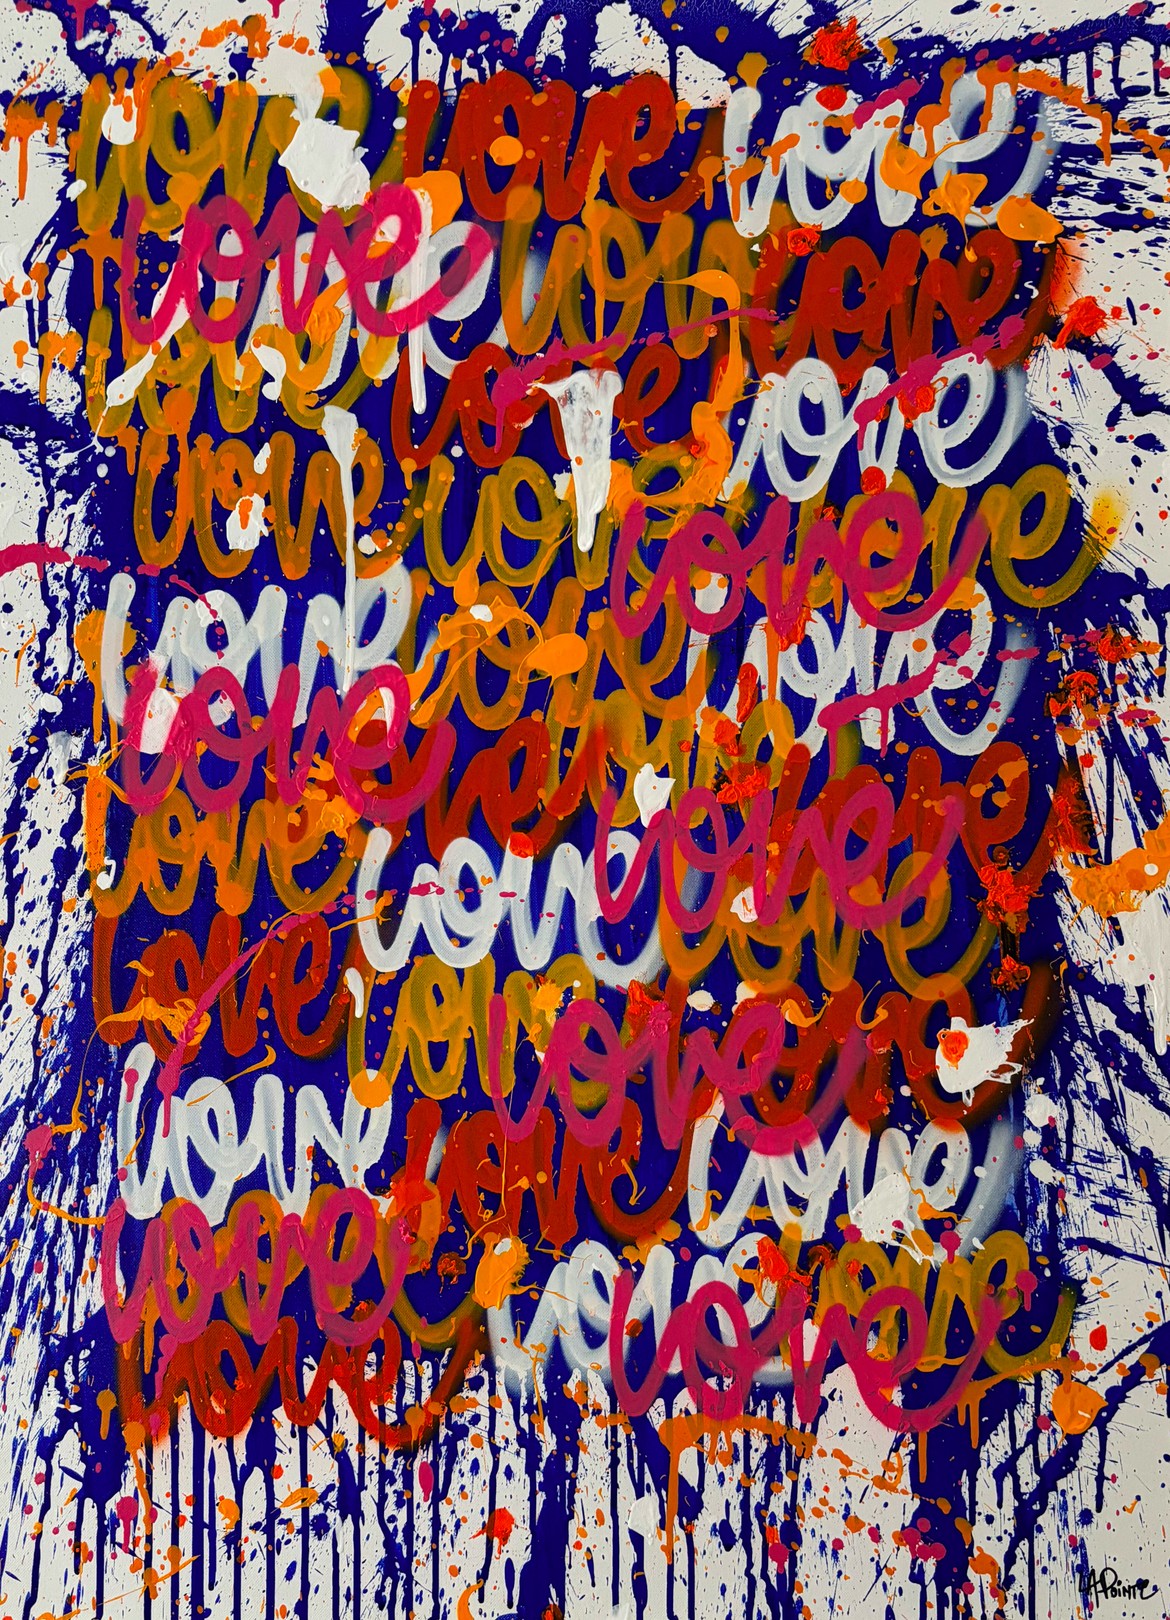 love love love
love love love
love love love
love love love love
love love love
love love love
love love love
love love love
love love love
love love love
love love love
love
LAPOINTE